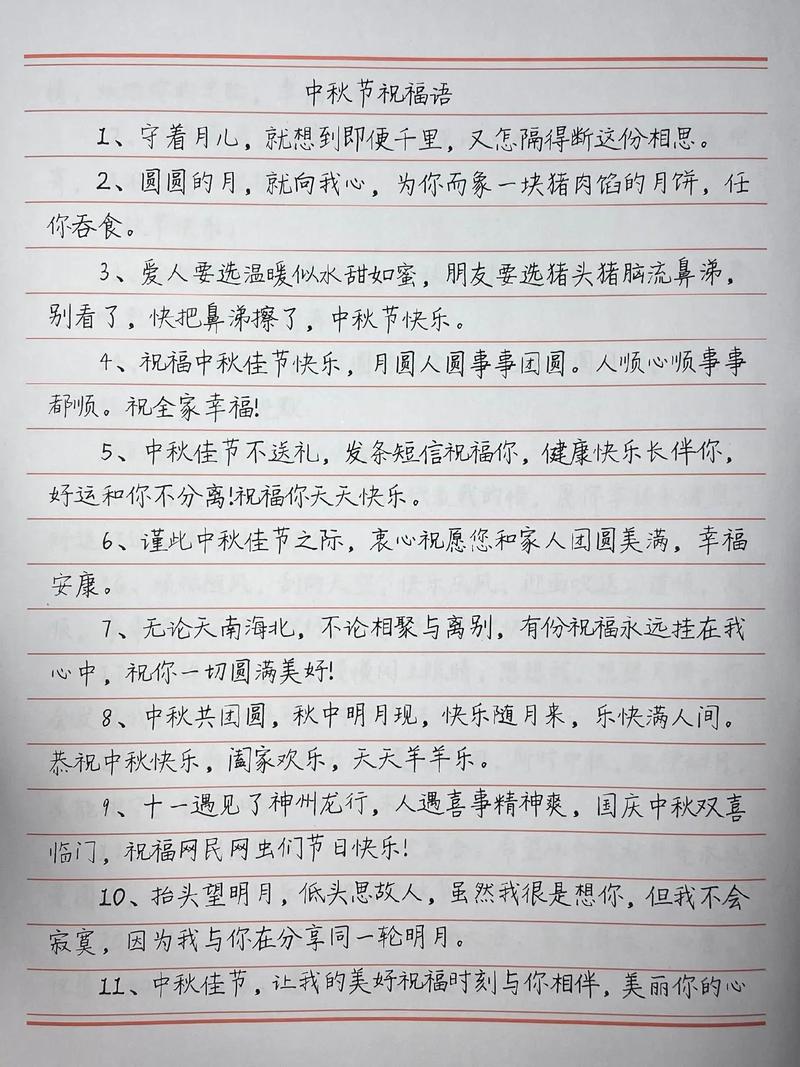 中秋节祝福语
1、守着月儿，就想到即便千里，又怎隔得断这份相思。
2、圆圆的月，就向我心，为你而象一块猪肉馅的月饼，任
你吞食。
3、爱人要选温暖似水甜如蜜，朋友要选猪头猪脑流鼻涕，
别看了，快把鼻涕擦了，中秋节快乐。
4、祝福中秋佳节快乐，月圆人圆事事团圆。人顺心顺事事
都顺。祝全家幸福！
5、中秋佳节不送礼，发条短信祝福你，健康快乐长伴你，
好运和你不分离！祝福你天天快乐。
6、谨此中秋佳节之际，衷心祝愿您和家人团圆美满，幸福
安康。
7、无论天南海北，不论相聚与离别，有份祝福永远挂在我
心中，祝你一切圆满美好！
8、中秋共团圆，秋中明月现，快乐随月来，乐快满人间。
恭祝中秋快乐，阖家欢乐，天天羊羊乐。
9、十一遇见了神州龙行，人遇喜事精神爽，国庆中秋双喜
临门，祝福网民网虫们节日快乐！
10、抬头望明月，低头思故人，虽然我很是想你，但我不会
寂寞，因为我与你在分享同一轮明月。
11、中秋佳节，让我的美好祝福时刻与你相伴，美丽你的心